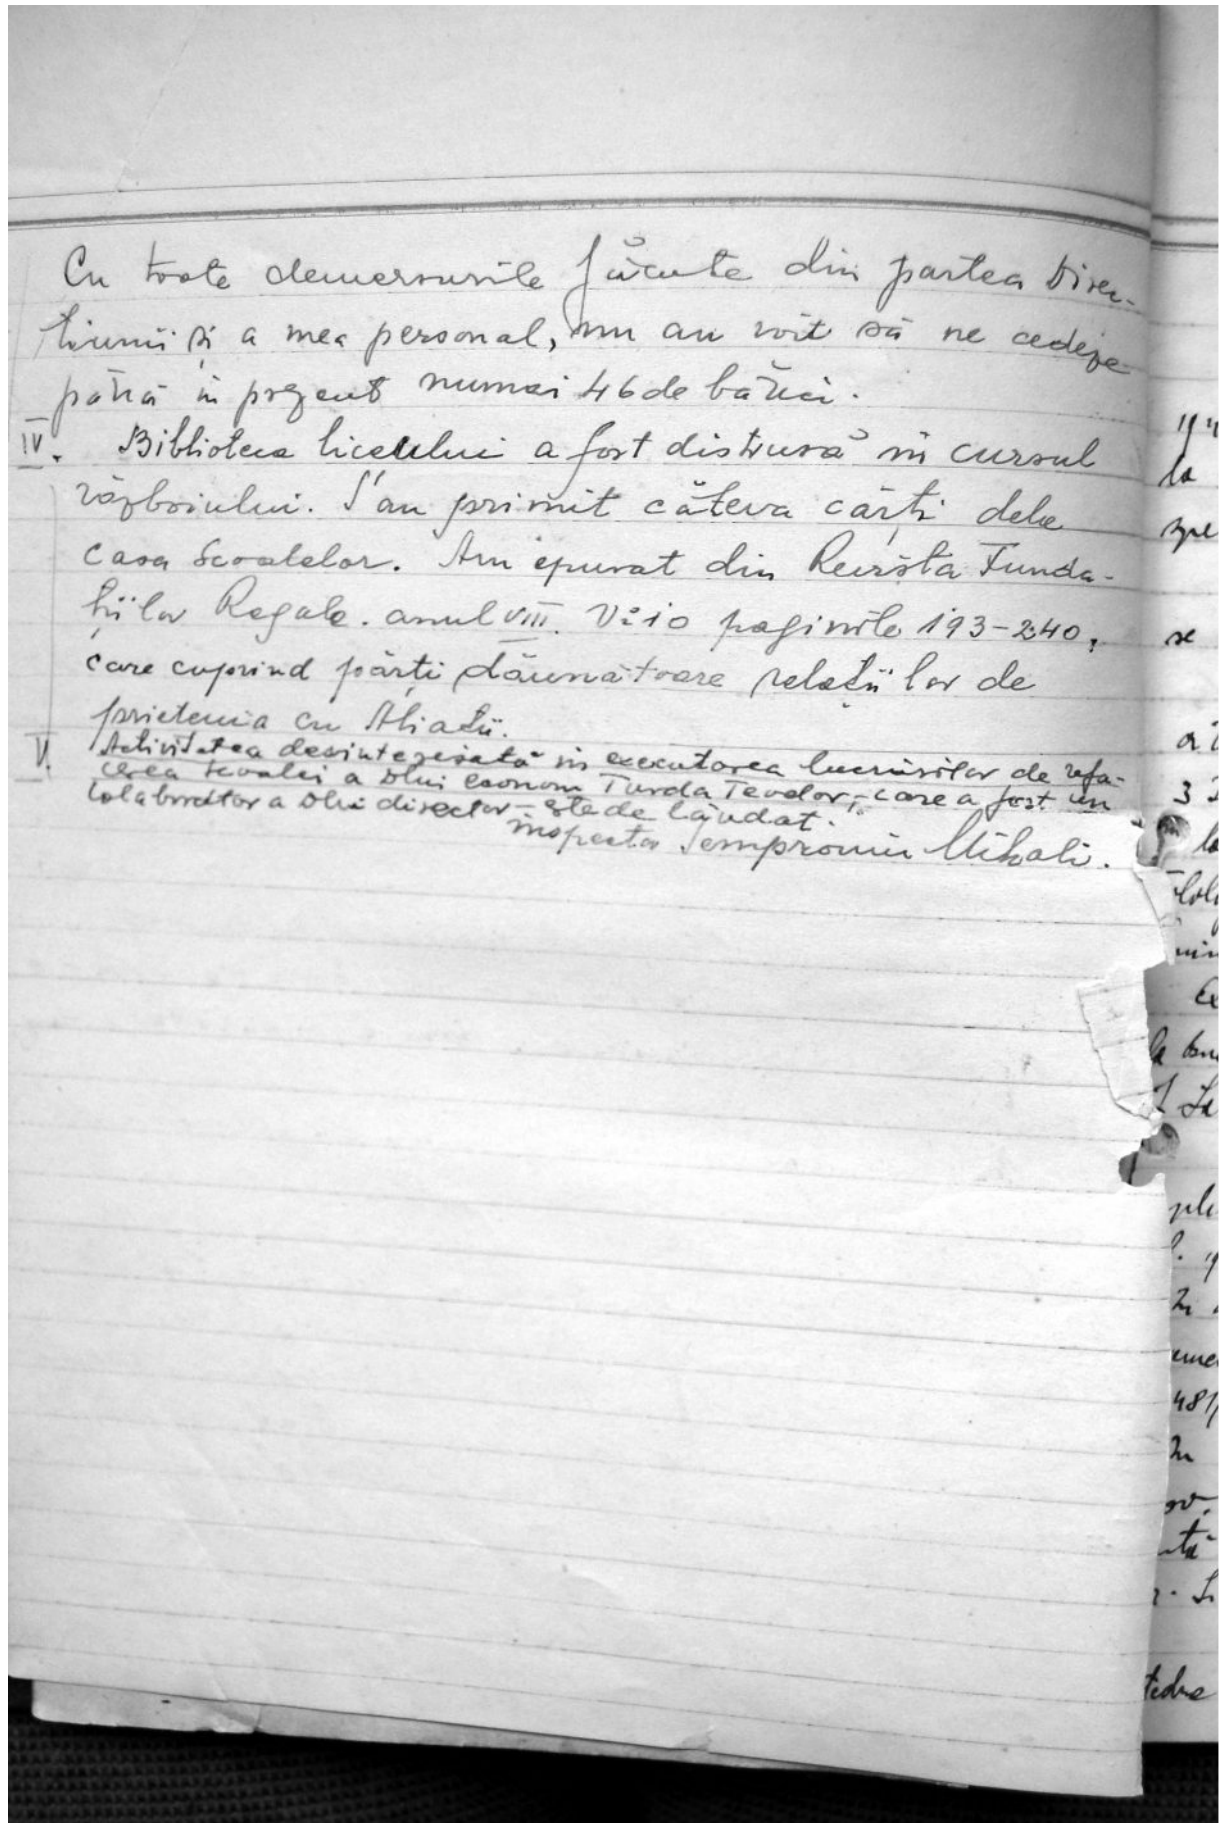 Cu toate demersurile făcute din partea Direc-
țiunii și a mea personal, nu au voit să ne cedeze
până în prezent numai 46 de bănci.
IV. Biblioteca liceului a fost distrusă în cursul
războiului. S'au primit câteva cărți dela
casa școalelor. Am epurat din Revista Funda-
țiilor Regale. anul VIII. No 10 paginile 193-240,
care cuprind părți dăunătoare relațiilor de
prietenia cu Aliații.
V. Activitatea desinteresată în executarea lucrărilor de refa-
cerea școalei a Dlui econom Turda Teodor, - care a fost un
colaborator a Dlui director - este de lăudat.
inspector Semproniu Mihali.
la
spe
se
3
la
Ex
la
In
481
In
tedre